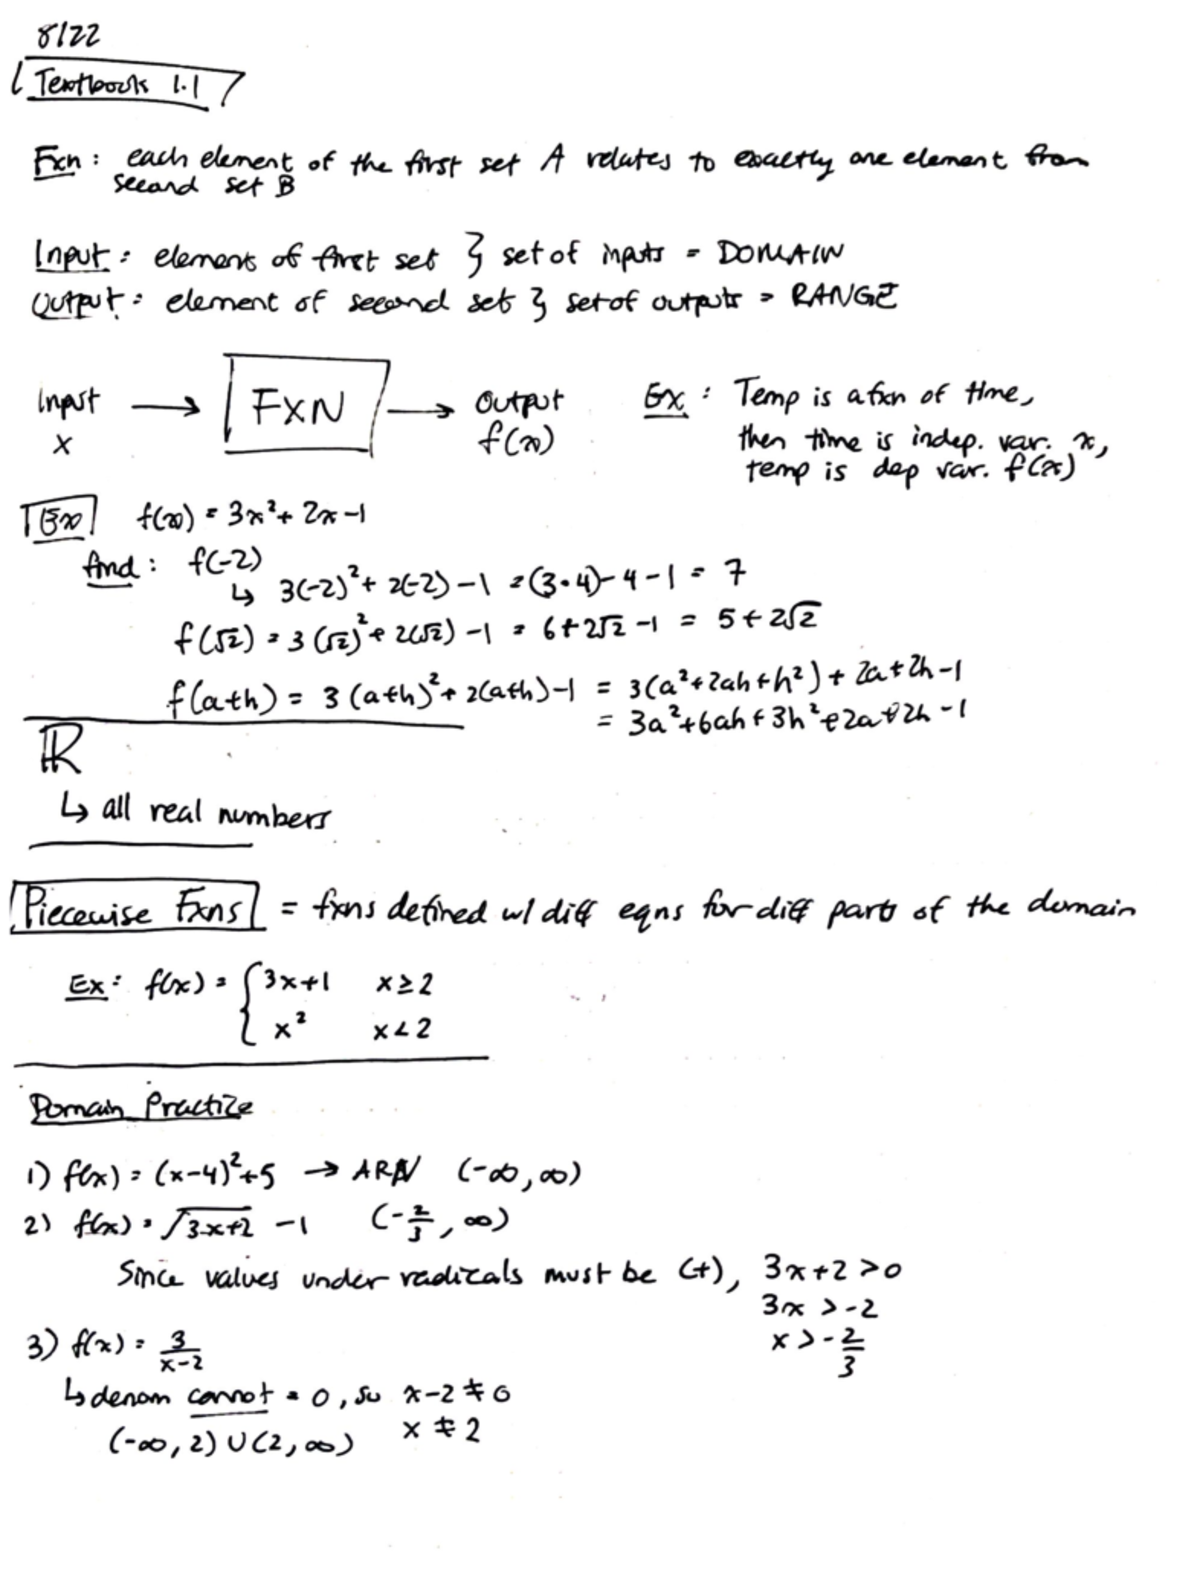 8/22
Textbook 1.1
Fxn: each element of the first set A relates to exactly one element from
second set B
Input: element of first set } set of inputs = DOMAIN
Output: element of second set } set of outputs = RANGE
Input → FXN → Output
x f(x)
Ex: Temp is a fxn of time,
then time is indep. var. x,
temp is dep var. f(x)
Ex f(x) = 3x²+ 2x-1
find: f(-2)
↳ 3(-2)²+ 2(-2) -1 = (3·4)-4-1 = 7
f(√2) = 3(√2)²+ 2(√2) -1 = 6+2√2 -1 = 5+2√2
f(a+h) = 3(a+h)²+ 2(a+h)-1 = 3(a²+2ah+h²)+ 2a+2h-1
= 3a²+6ah+3h²+2a+2h-1
ℝ
↳ all real numbers
Piecewise Fxns = fxns defined w/ diff eqns for diff parts of the domain
Ex: f(x) = { 3x+1 x≥2
x² x<2
Domain Practice
1) f(x) = (x-4)²+5 → ARN (-∞,∞)
2) f(x) = √3x+2 -1 (-2/3, ∞)
Since values under radicals must be (+), 3x+2>0
3x > -2
x > -2/3
3) f(x) = 3/x-2
↳ denom cannot = 0, so x-2≠0
x≠2
(-∞,2)∪(2,∞)